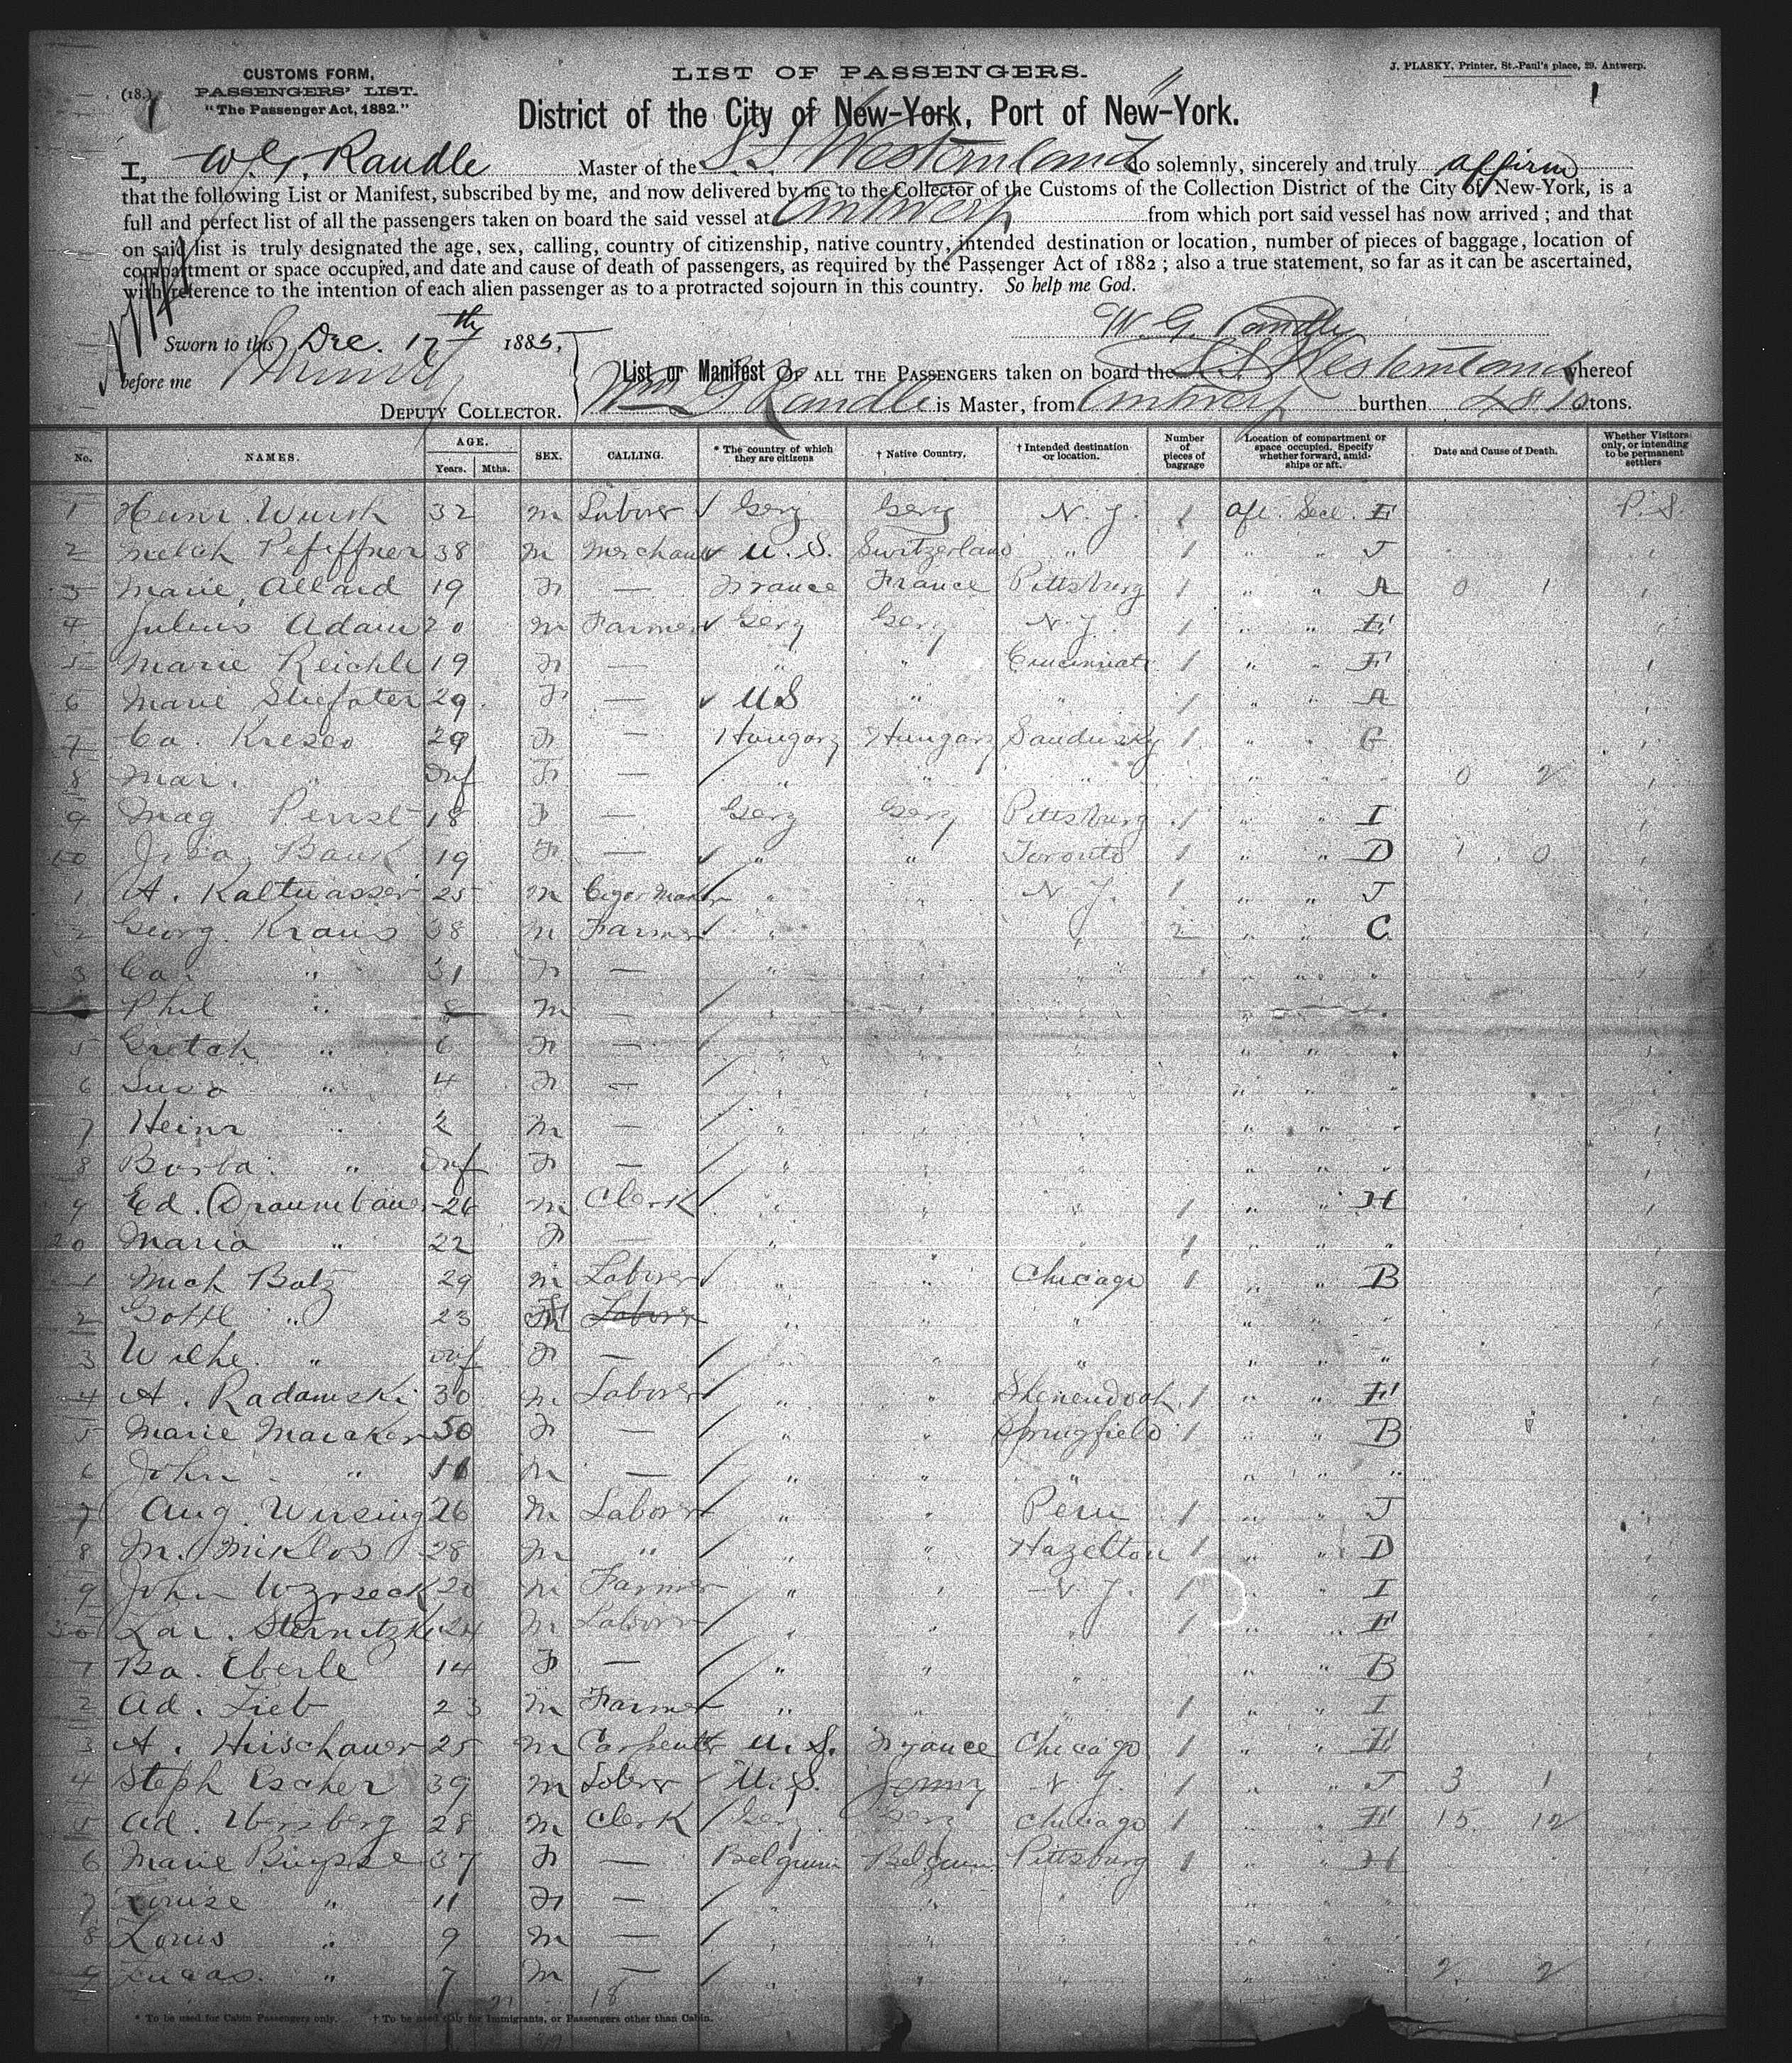 CUSTOMS FORM,
(18.) PASSENGERS' LIST.
"The Passenger Act, 1882."
LIST OF PASSENGERS.
J. PLASKY, Printer, St.-Paul's place, 29. Antwerp.
1
District of the City of New-York, Port of New-York.
I, W. G. Randle Master of the S.S. Westernland do solemnly, sincerely and truly affirm
that the following List or Manifest, subscribed by me, and now delivered by me to the Collector of the Customs of the Collection District of the City of New-York, is a
full and perfect list of all the passengers taken on board the said vessel at Antwerp from which port said vessel has now arrived ; and that
on said list is truly designated the age, sex, calling, country of citizenship, native country, intended destination or location, number of pieces of baggage, location of
compartment or space occupied, and date and cause of death of passengers, as required by the Passenger Act of 1882 ; also a true statement, so far as it can be ascertained,
with reference to the intention of each alien passenger as to a protracted sojourn in this country. So help me God.
W. G. Randle
Sworn to this Dec. 17th 1885,
before me
DEPUTY COLLECTOR.
List or Manifest OF ALL THE PASSENGERS taken on board the S.S. Westernland whereof
Wm G Randle is Master, from Antwerp burthen tons.
No. NAMES. AGE. Years. Mths. SEX. CALLING. * The country of which they are citizens † Native Country. † Intended destination or location. Number of pieces of baggage Location of compartment or space occupied. Specify whether forward, amidships or aft. Date and Cause of Death. Whether Visitors only, or intending to be permanent settlers
1 Heinr. 32 m Laborer Gery Gery N. Y. 1 Aft. Sect. E P. S.
2 Pefiffner 38 m Merchant U. S. Switzerland " 1 " " J
3 Marie Allard 19 F — France France Pittsburg 1 " " A 0 1
4 Julius Adam 20 m Farmer Gery Gery N. Y. 1 " " E
5 Marie Reichle 19 F — " " Cincinnati 1 " " F
6 Marie 29 F — U S " " 1 " " A
7 Ca. Kresco 29 F — Hungary Hungary Sandusky 1 " " G
8 Mar. " Inf F — " " " " " 0 2
9 Mag 18 F — Gery Gery Pittsburg 1 " " I
10 19 F — " " Toronto 1 " " D 1 0
1 A. Kaltwasser 25 m Cigar Maker " " N. Y. 1 " " J
2 Georg Kraus 38 m Farmer " " " 2 " " C
3 Ca. " 31 F — " " " " " "
Phil " 8 m — " "
5 Gretch " 6 F — " " " " " "
6 Susa " 4 F — " " " " " "
7 Heinr " 2 m — " " " " " "
8 Barba. " Inf F — " " " " " "
9 Ed. 26 m Clerk " " " 1 " " H
20 Maria " 22 F — " " " 1 " " "
1 Mich Batz 29 m Laborer " " Chicago 1 " " B
2 Gottl " 23 F Laborer " " " " " "
3 Wilhe. " Inf F — " " " " " "
4 A. Radamski 30 m Laborer " " Shenendoah 1 " " E
5 Marie Maraker 50 F — " " Springfield 1 " " B
6 John " 11 m — " " " " " "
7 Aug. Wirsing 26 m Laborer " " Peru 1 " " J
8 M. Miklos 28 m " " " Hazelton 1 " " D
9 John m Farmer " " N. Y. 1 " " I
30 24 m Laborer " " " 1 " " E
1 Ba. Eberle 14 F — " " " " " B
2 Ad. Lieb 23 m Farmer " " " 1 " " I
3 A. Hirschauer 25 m Carpenter U. S. France Chicago 1 " " E
4 Steph Escher 39 m Laborer U. S. N. Y. 1 " " J 3 1
5 Ad. 28 m Clerk Gery Gery Chicago 1 " " E 15 12
6 Marie 37 F — Belgium Belgium Pittsburg 1 " " H
7 Louise " 11 F — " " " " " "
8 Louis " 9 m — " " " " " "
9 Lucas. " 7 m — " " " " " " 2 2
18
* To be used for Cabin Passengers only. † To be used only for Immigrants, or Passengers other than Cabin.